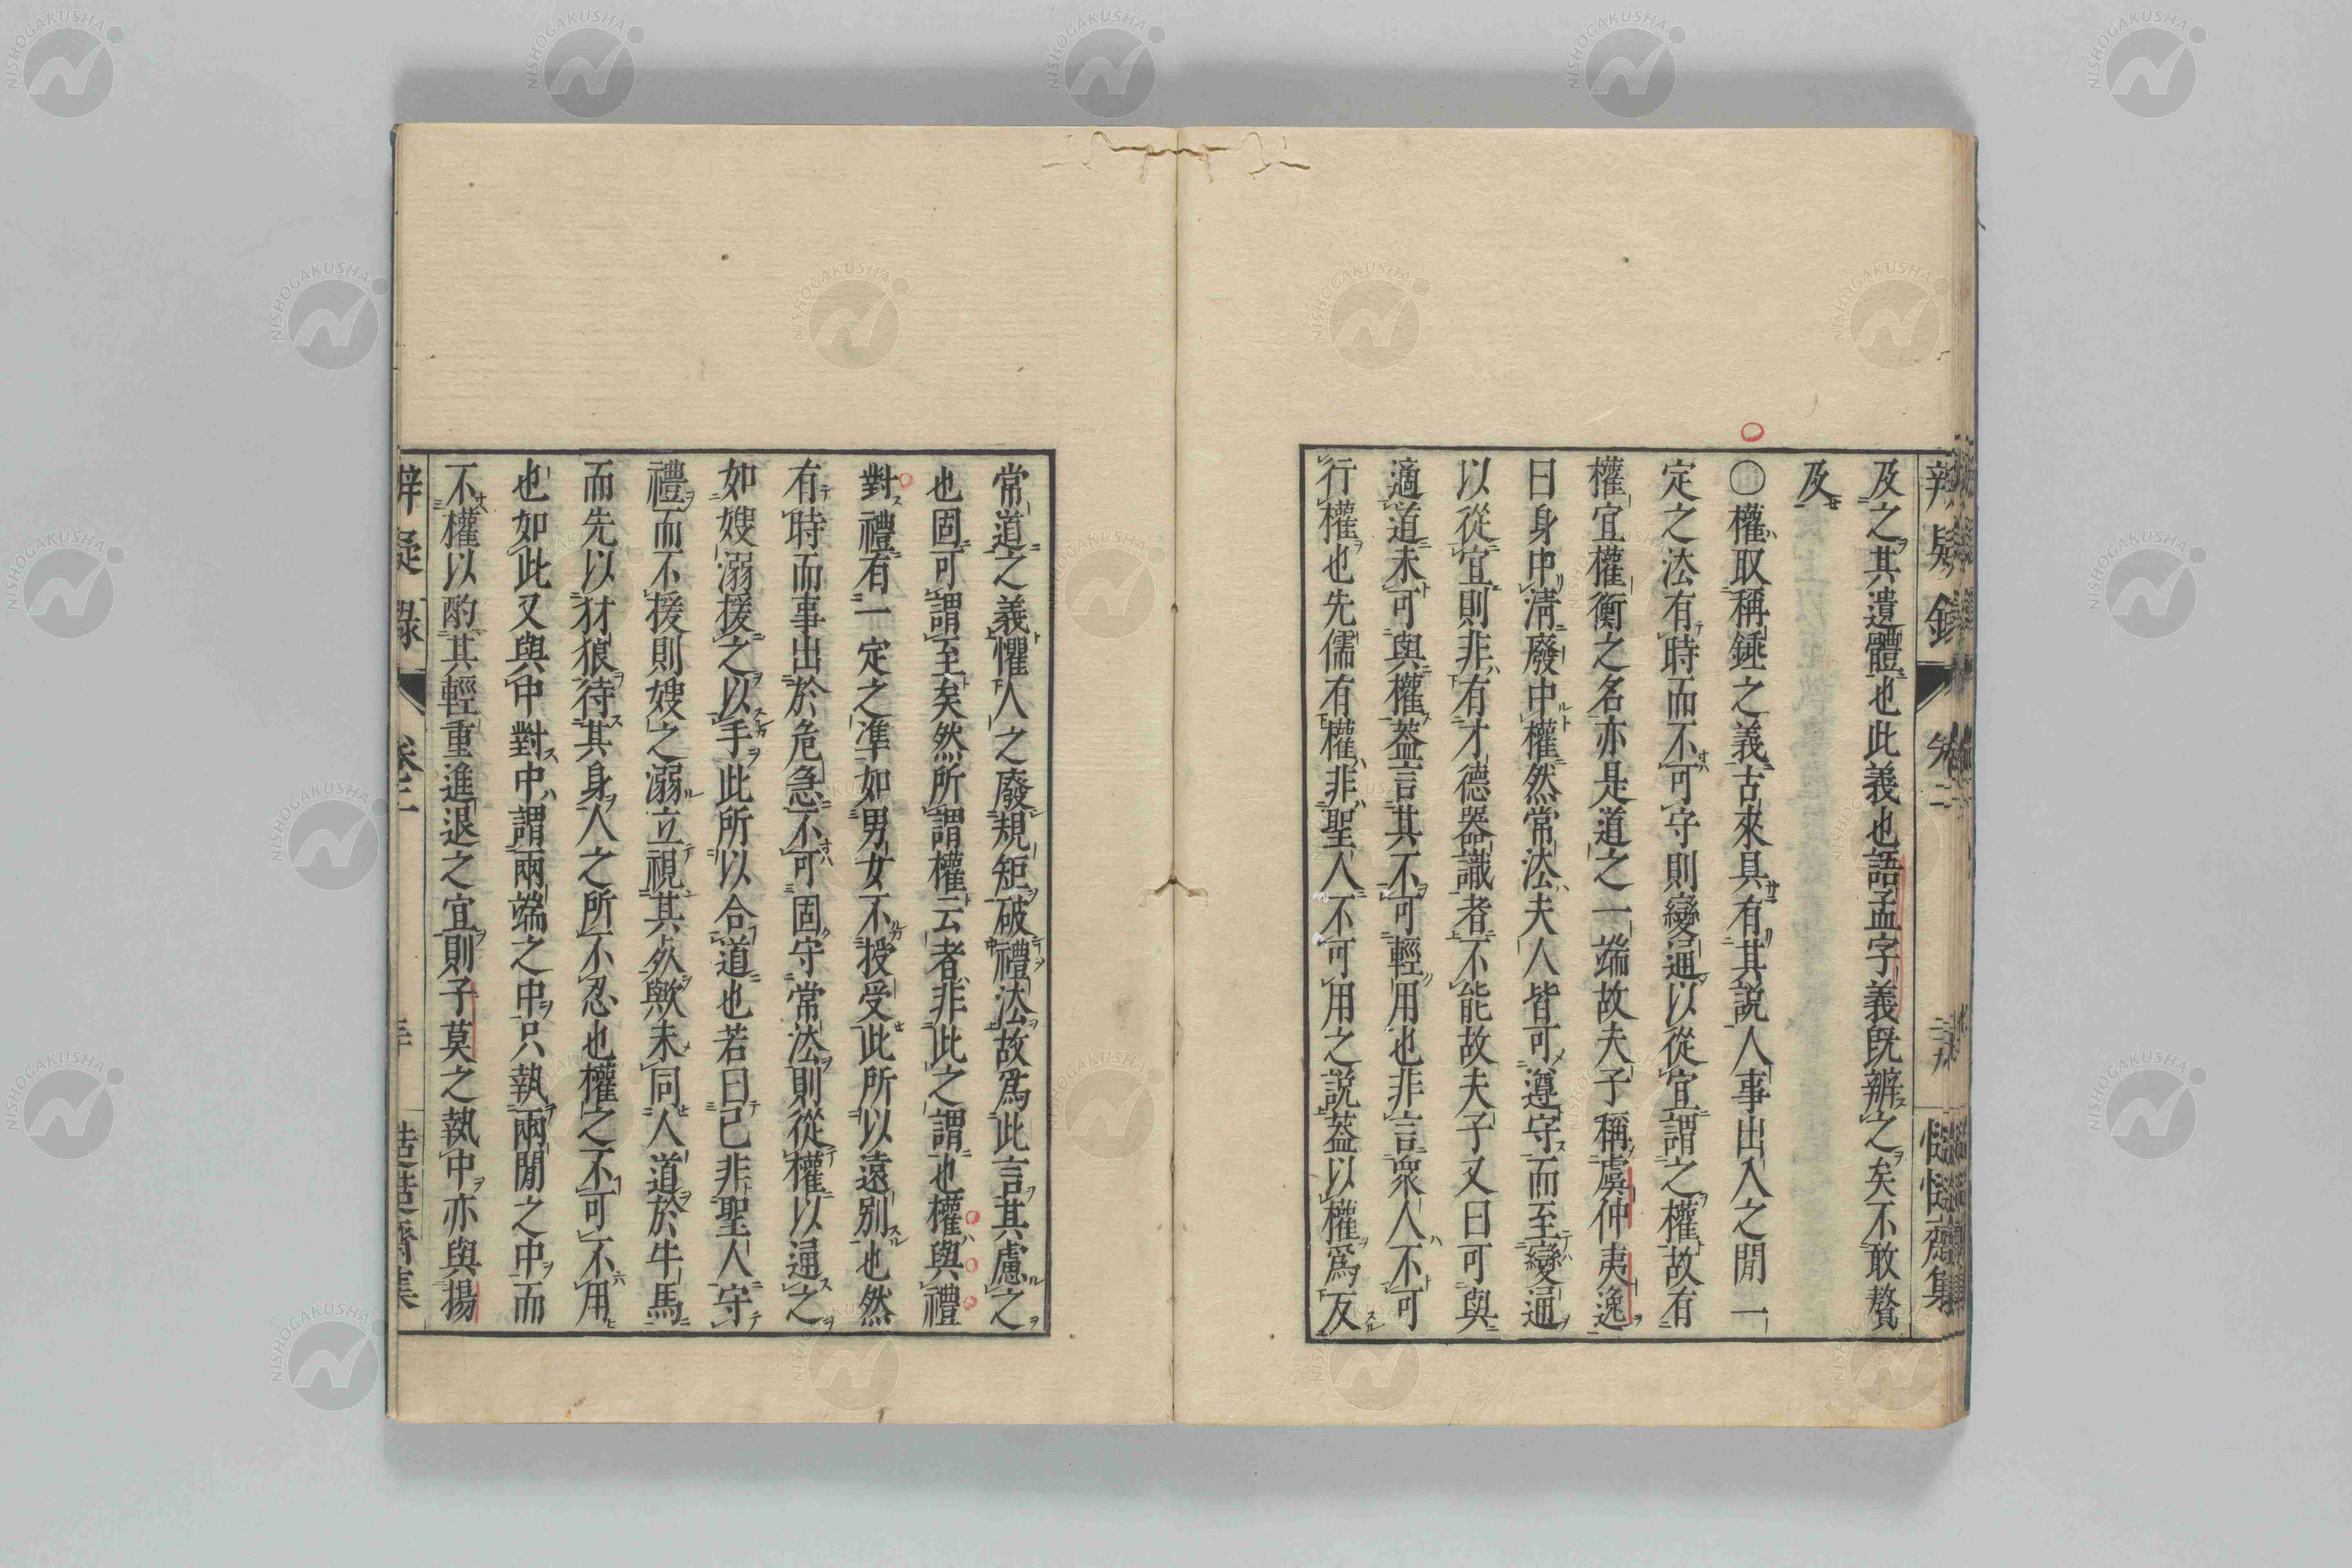 及之其遺體也此義也語孟字義既辨之矣不敢贅
及
〇權取稱錘之義古來具有其説人事出入之閒一
定之法有時而不可守則變通以從宜謂之權故有
權宜權衡之名亦是道之一端故夫子稱虞仲夷逸
曰身中清廢中權然常法夫人皆可遵守而至變通
以從宜則非有才德器識者不能故夫子又曰可與
適道未可與權蓋言其不可輕用也非言衆人不可
行權也先儒有權非聖人不可用之説蓋以權爲反
常道之義懼人之廢規矩破禮法故爲此言其慮之
也固可謂至矣然所謂權云者非此之謂也權與禮
對禮有一定之準如男女不授受此所以遠別也然
有時而事出於危急不可固守常法則從權以通之
如嫂溺援之以手此所以合道也若曰已非聖人守
禮而不援則嫂之溺立視其死歟未同人道於牛馬
而先以犲狼待其身人之所不忍也權之不可不用
也如此又與中對中謂兩端之中只執兩閒之中而
不權以酌其輕重進退之宜則子莫之執中亦與揚
辨疑録
卷二
NISHOGAKUSHA